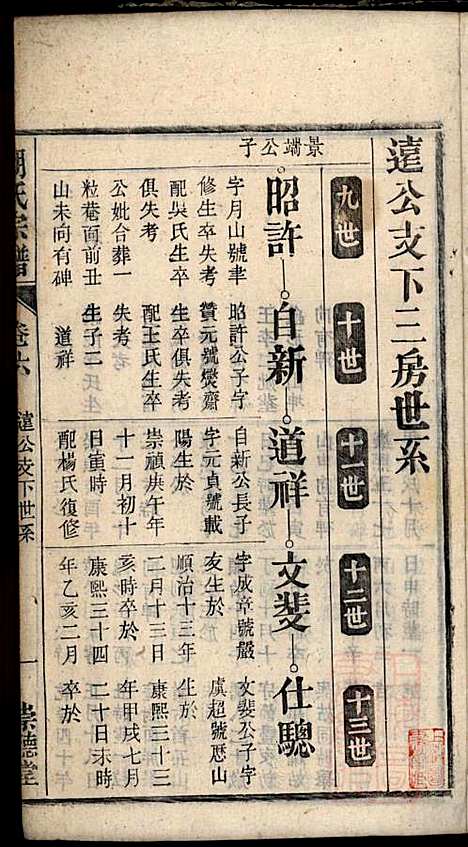 遠公支下三房世系
九世 十世 十一世 十二世 十三世
景端公子
昭許 自新 道祥 文斐 仕驄
字月山號聿
修生卒失考
配吳氏生卒
俱失考
公妣合葬一
粒菴面前丑
山未向有碑
昭許公子字
贊元號爕齋
生卒俱失考
配王氏生卒
失考
生子二
道祥
自新公長子
字元貞號載
陽生於
崇禎庚午年
十一月初十
日寅時
配楊氏復修
字成章號嚴
友生於
順治十三年
二月十三日
亥時卒於
康熙三十四
年乙亥二月
文斐公子字
虞超號應山
生於
康熙三十三
年甲戌七月
二十日未時
卒於
胡氏宗譜
卷六
遠公支下世系
一
崇德堂